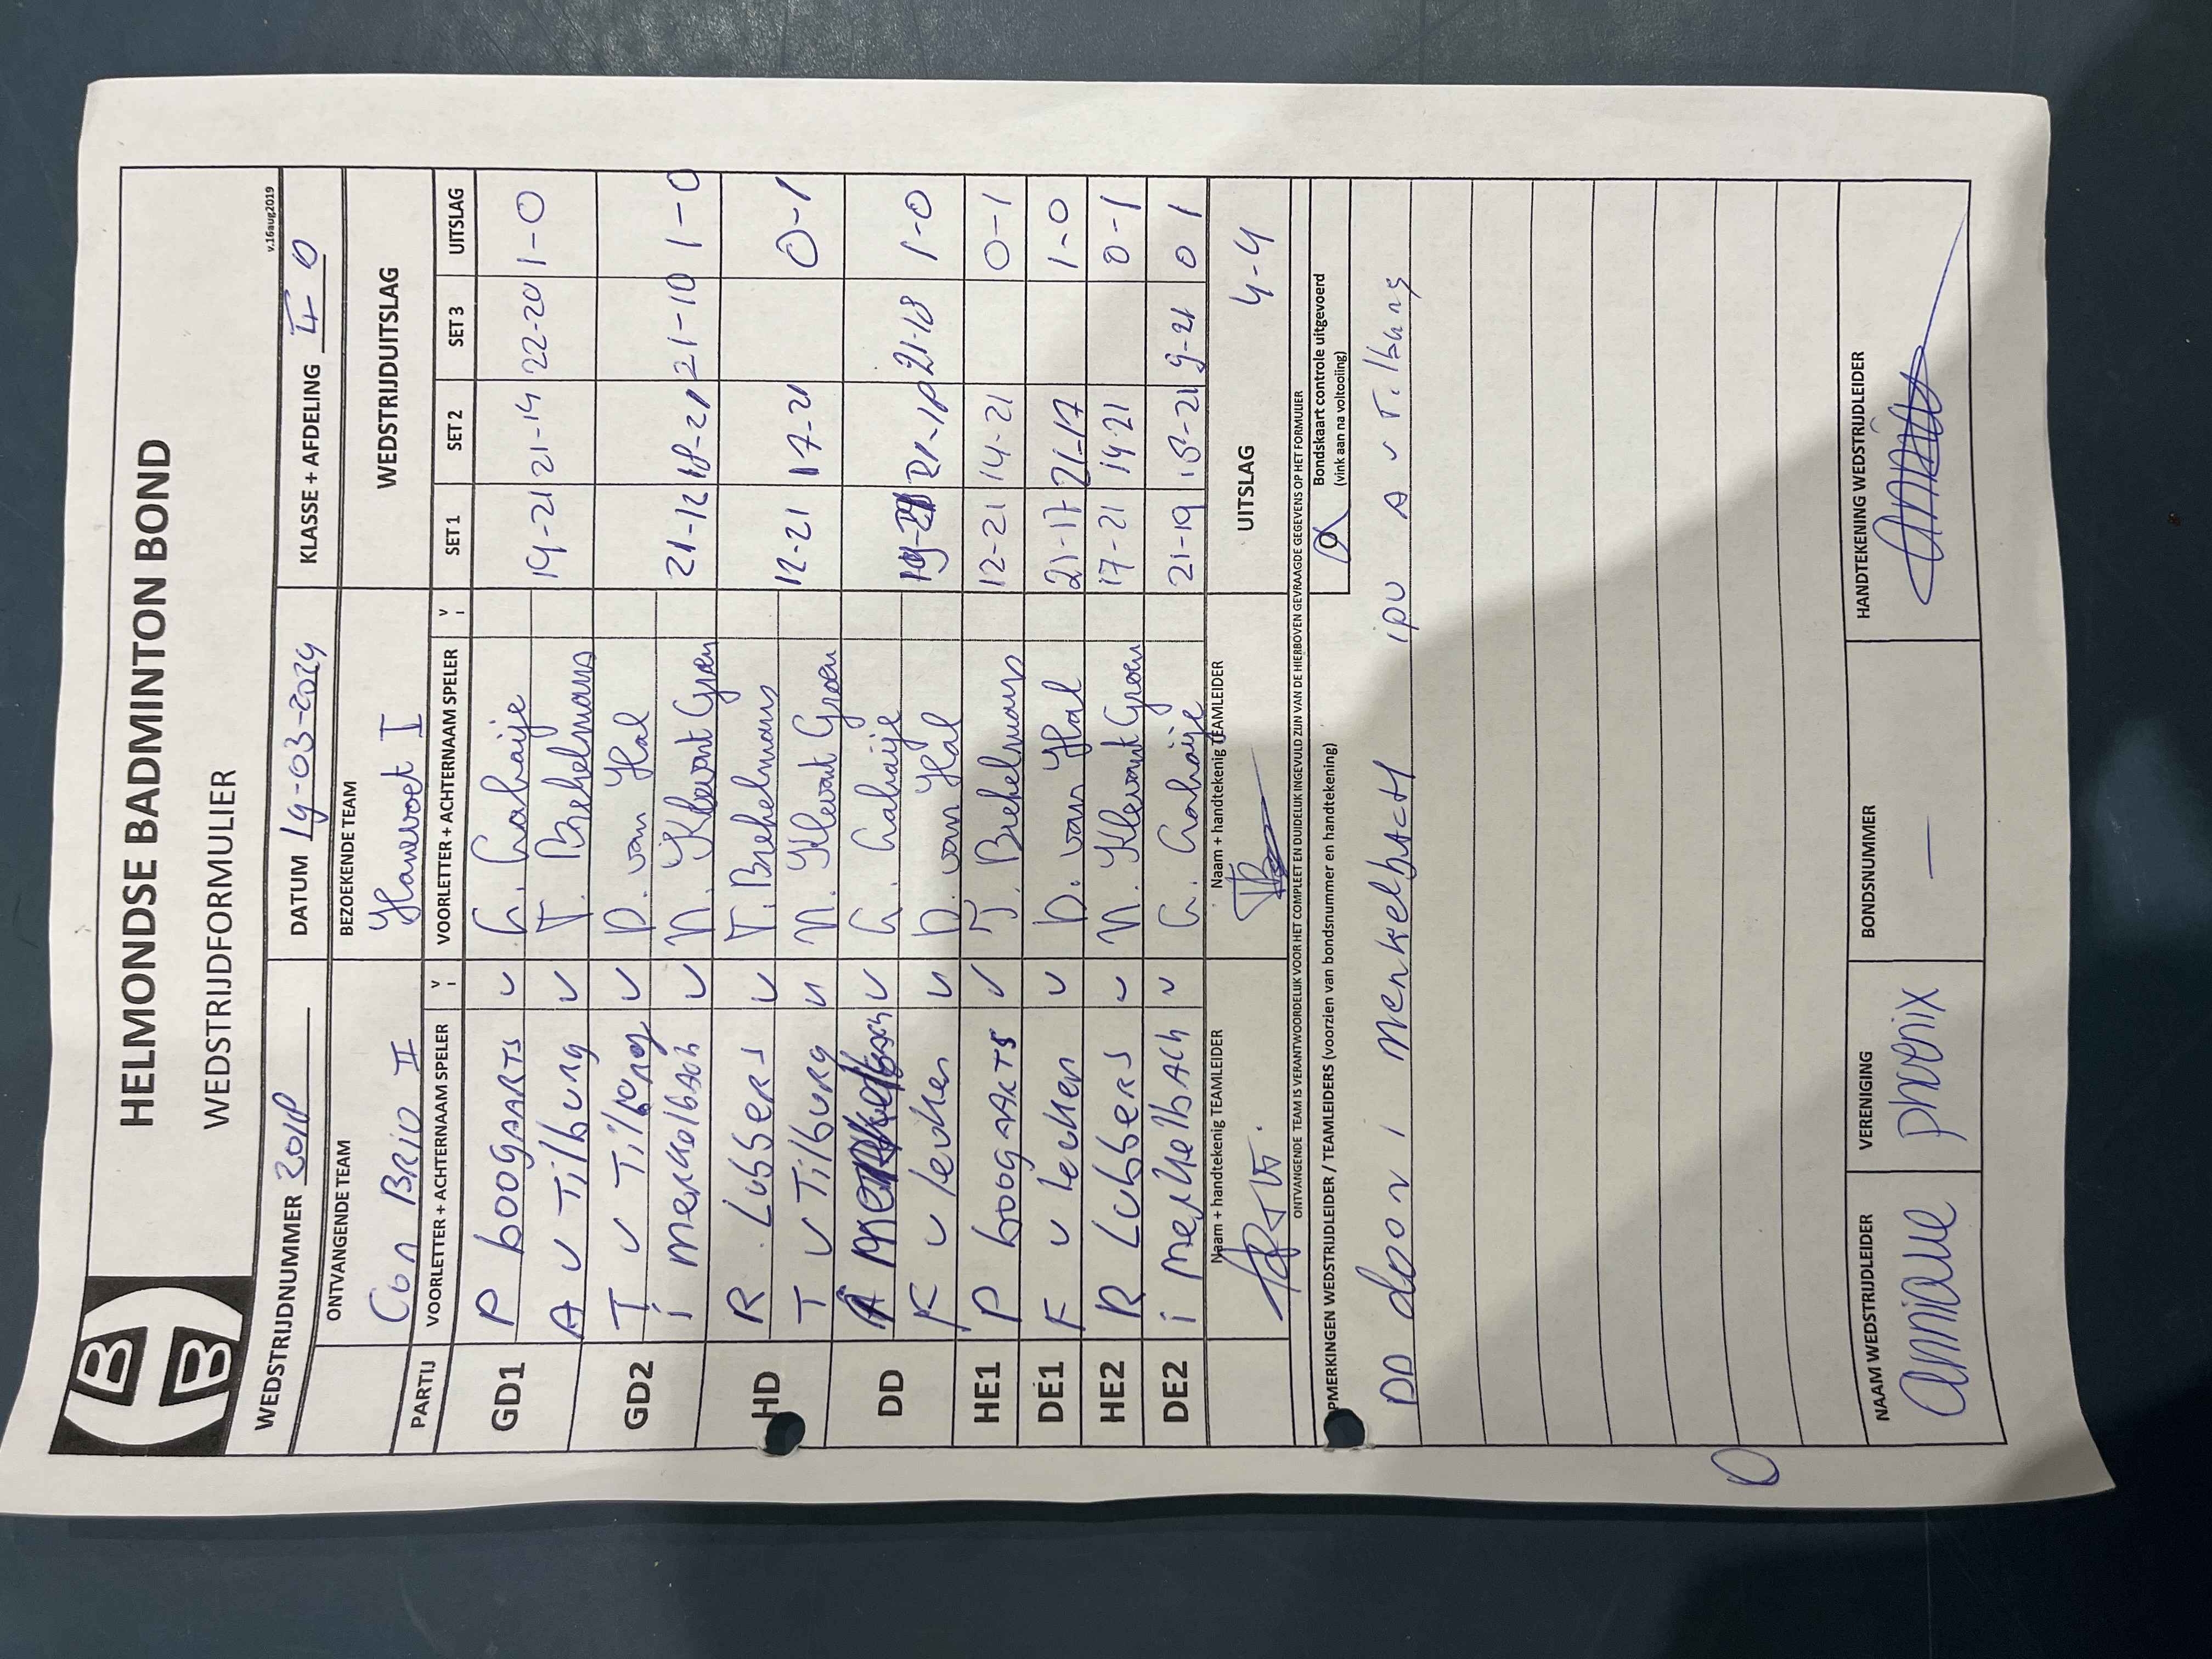 HELMONDSE BADMINTON BOND
WEDSTRIJDFORMULIER
v.16aug2019
WEDSTRIJDNUMMER 301P DATUM 19-03-2024 KLASSE + AFDELING II 0
ONTVANGENDE TEAM BEZOEKENDE TEAM WEDSTRIJDUITSLAG
Con Brio II Hanevoet I
PARTIJ VOORLETTER + ACHTERNAAM SPELER V I VOORLETTER + ACHTERNAAM SPELER V I SET 1 SET 2 SET 3 UITSLAG
GD1 P boogaARTS v
A v Tilburg v T. Brekelmans 19-21 21-14 22-20 1-0
GD2 T v Tilburg v D. van Hal
i merkelbach v N. Klevant Groen 21-12 18-21 21-10 1-0
HD R Lubbers v T. Brekelmans
T v Tilburg v N. Klevant Groen 12-21 17-21 0-1
DD v
v D. van Hal 19-21 21-18 21-18 1-0
HE1 P boogaARTS v T. Brekelmans 12-21 14-21 0-1
DE1 v D. van Hal 21-17 21-17 1-0
HE2 R Lubbers v N. Klevant Groen 17-21 14-21 0-1
DE2 i merkelbach v 21-19 15-21 9-21 0 1
Naam + handtekenig TEAMLEIDER Naam + handtekenig TEAMLEIDER UITSLAG 4-4
ONTVANGENDE TEAM IS VERANTWOORDELIJK VOOR HET COMPLEET EN DUIDELIJK INGEVULD ZIJN VAN DE HIERBOVEN GEVRAAGDE GEGEVENS OP HET FORMULIER
PMERKINGEN WEDSTRIJDLEIDER / TEAMLEIDERS (voorzien van bondsnummer en handtekening) Bondskaart controle uitgevoerd
(vink aan na voltooiing)
DD door i Merkelbach ipv A v Tilburg
NAAM WEDSTRIJDLEIDER VERENIGING BONDSNUMMER HANDTEKENING WEDSTRIJDLEIDER
Annique phoenix —